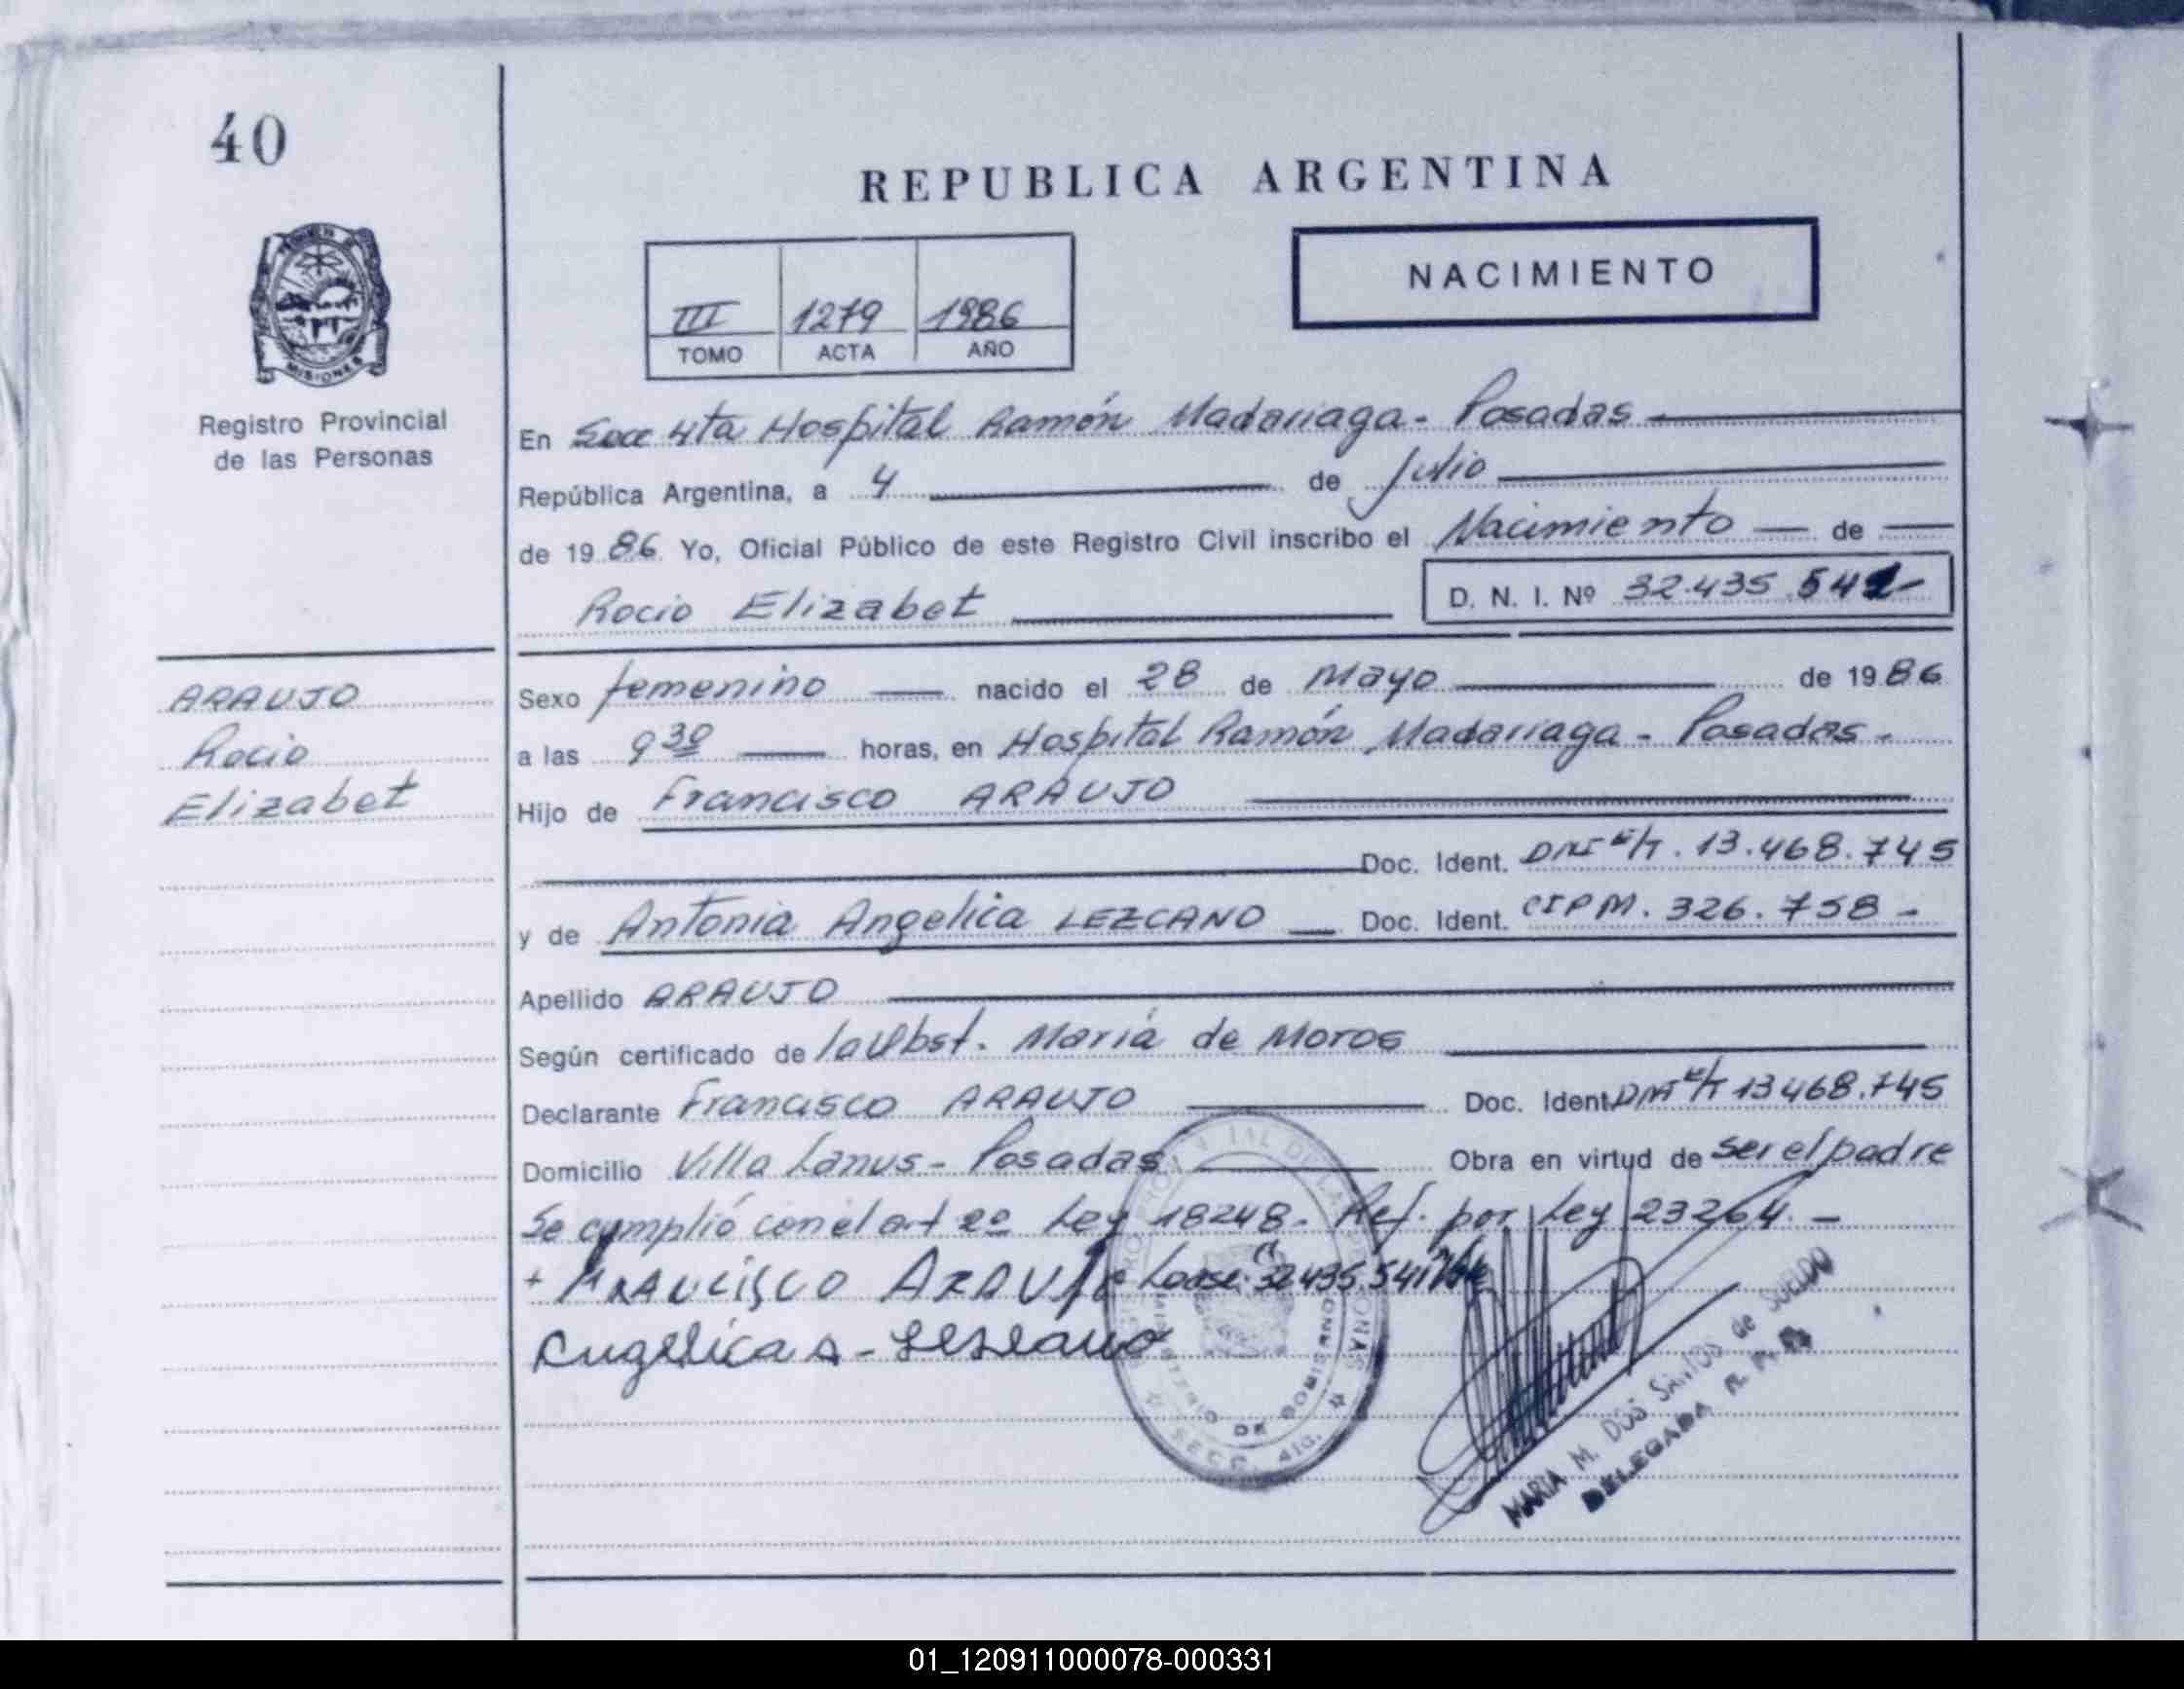 40
REPUBLICA ARGENTINA
NACIMIENTO
III 1279 1986
TOMO ACTA AÑO
MISIONES
Registro Provincial
de las Personas
En Secc 4ta Hospital Ramón Madariaga - Posadas
República Argentina, a 4 de Julio
de 1986 Yo, Oficial Público de este Registro Civil inscribo el Nacimiento de
Rocio Elizabet D. N. I. Nº 32.435.541-
ARAUJO
Rocio
Elizabet
Sexo femenino nacido el 28 de Mayo de 1986
a las 9 30 horas, en Hospital Ramón Madariaga - Posadas -
Hijo de Francisco ARAUJO
Doc. Ident. DNI E/T. 13.468.745
y de Antonia Angelica LEZCANO Doc. Ident. CIPM. 326.758 -
Apellido ARAUJO
Según certificado de la Obst. María de Moros
Declarante Francisco ARAUJO Doc. Ident. DNI E/T 13468.745
Domicilio Villa Lanus - Posadas Obra en virtud de ser el padre
Se cumplió con el art 2º Ley 18248 - Ref. por Ley 23264 -
+ FRANCISCO ARAUJO 32.435.541
Angelica A - Lescano
MINISTERIO DE GOBIERNO
SECC. 4ta.
MARIA M. DOS SANTOS de SUELDO
DELEGADA R. P. P.
01_120911000078-000331